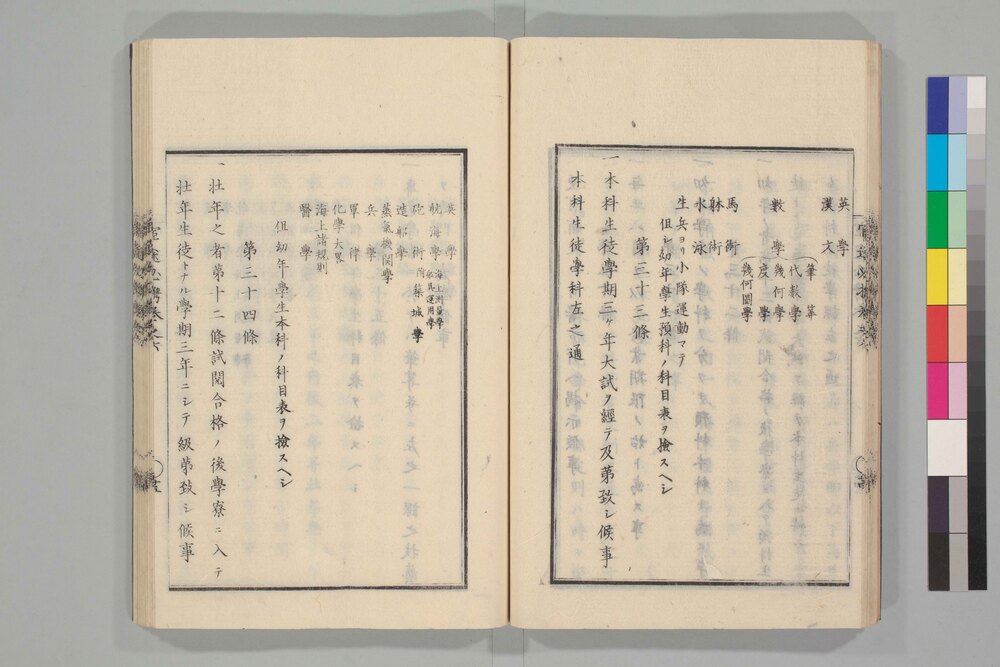 英學
漢文
數學
筆算
代數學
幾何學
度學
幾何圖學
馬術
躰術
水泳
生兵ヨリ小隊運動マテ
但シ幼年學生預科ノ科目表ヲ撿スヘシ
第三十三條
一本科生徒學期三ヶ年大試ヲ經テ及第致シ候事
本科生徒學科左之通
英學
航海學 海上測量學 船具運用學
砲術 附築城學
造船學
蒸氣機關學
兵學
軍律
化學大畧
海上諸規則
醫學
但幼年學生本科ノ科目表ヲ撿スヘシ
第三十四條
一壮年之者第十二條試閲合格ノ後學寮ニ入テ
壮年生徒トナル學期三年ニシテ級第致シ候事